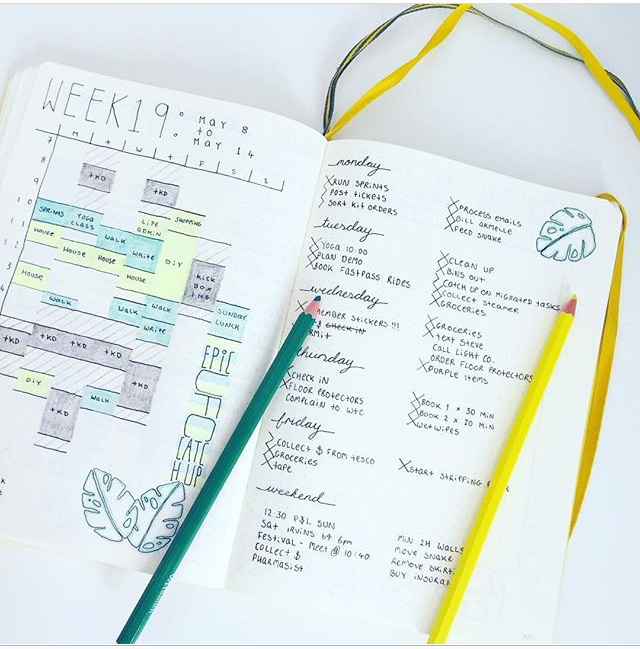 WEEK 19:
MAY 8
to
MAY 14
M T W T F S S
7
8
9
10
11
12
1
2
3
4
+KD
+KD
SPRINTS
YOGA CLASS
LIFE ADMIN
SHOPPING
HOUSE
WALK
WRITE
DIY
HOUSE
HOUSE
HOUSE
HOUSE
KICK BOXING
WALK
WALK
WALK
WRITE
SUNDAY LUNCH
+KD
+KD
+KD
+KD
+KD
DIY
+KD
WALK
EPIC
UFO
CATCH UP
monday
RUN SPRINTS
POST TICKETS
SORT KIT ORDERS
PROCESS EMAILS
BILL ARMELLE
FEED SNAKE
tuesday
YOGA 10:00
PLAN DEMO
BOOK FASTPASS RIDES
CLEAN UP
BINS OUT
CATCH UP ON MIGRATED TASKS
COLLECT STEAMER
GROCERIES
wednesday
MEMBER STICKERS !!!
$ CHECK IN
RMIT
GROCERIES
TEXT STEVE
CALL LIGHT CO.
ORDER FLOOR PROTECTORS
PURPLE ITEMS
thursday
CHECK IN
FLOOR PROTECTORS
COMPLAIN TO WTC
BOOK 1 x 30 MIN
BOOK 2 x 20 MIN
WETWIPES
friday
COLLECT $ FROM TESCO
GROCERIES
TAPE
START STRIPPING
weekend
12:30 P&L SUN
Sat IRVINS 64 6pm
FESTIVAL - MEET @ 10:40
COLLECT $
PHARMASIST
MIN 2H WALLS
MOVE SNAKE
REMOVE SKIRTI
BUY INSURAN